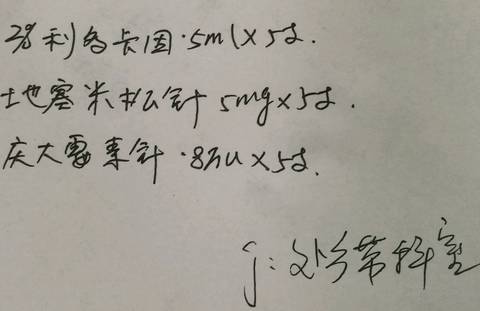 2%利多卡因·5ml×5支.
地塞米松针 5mg×5支.
庆大霉素针·8万u×5支.
j:处方带科室